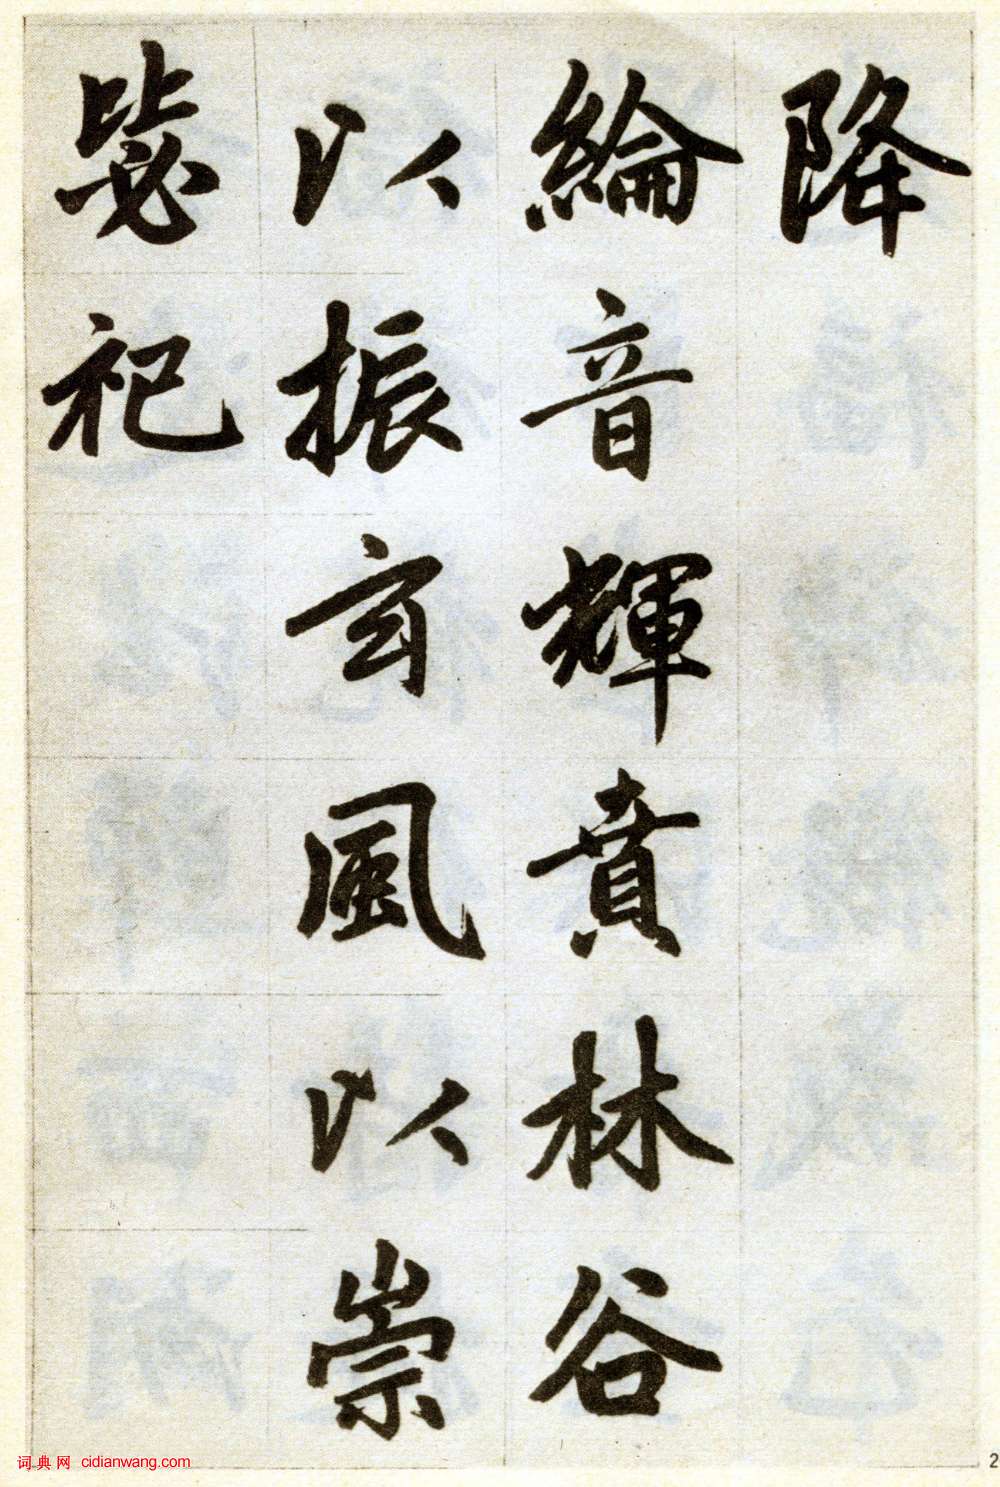 降
綸音輝賁林谷
以振玄風以崇
毖祀
2
词典网 cidianwang.com